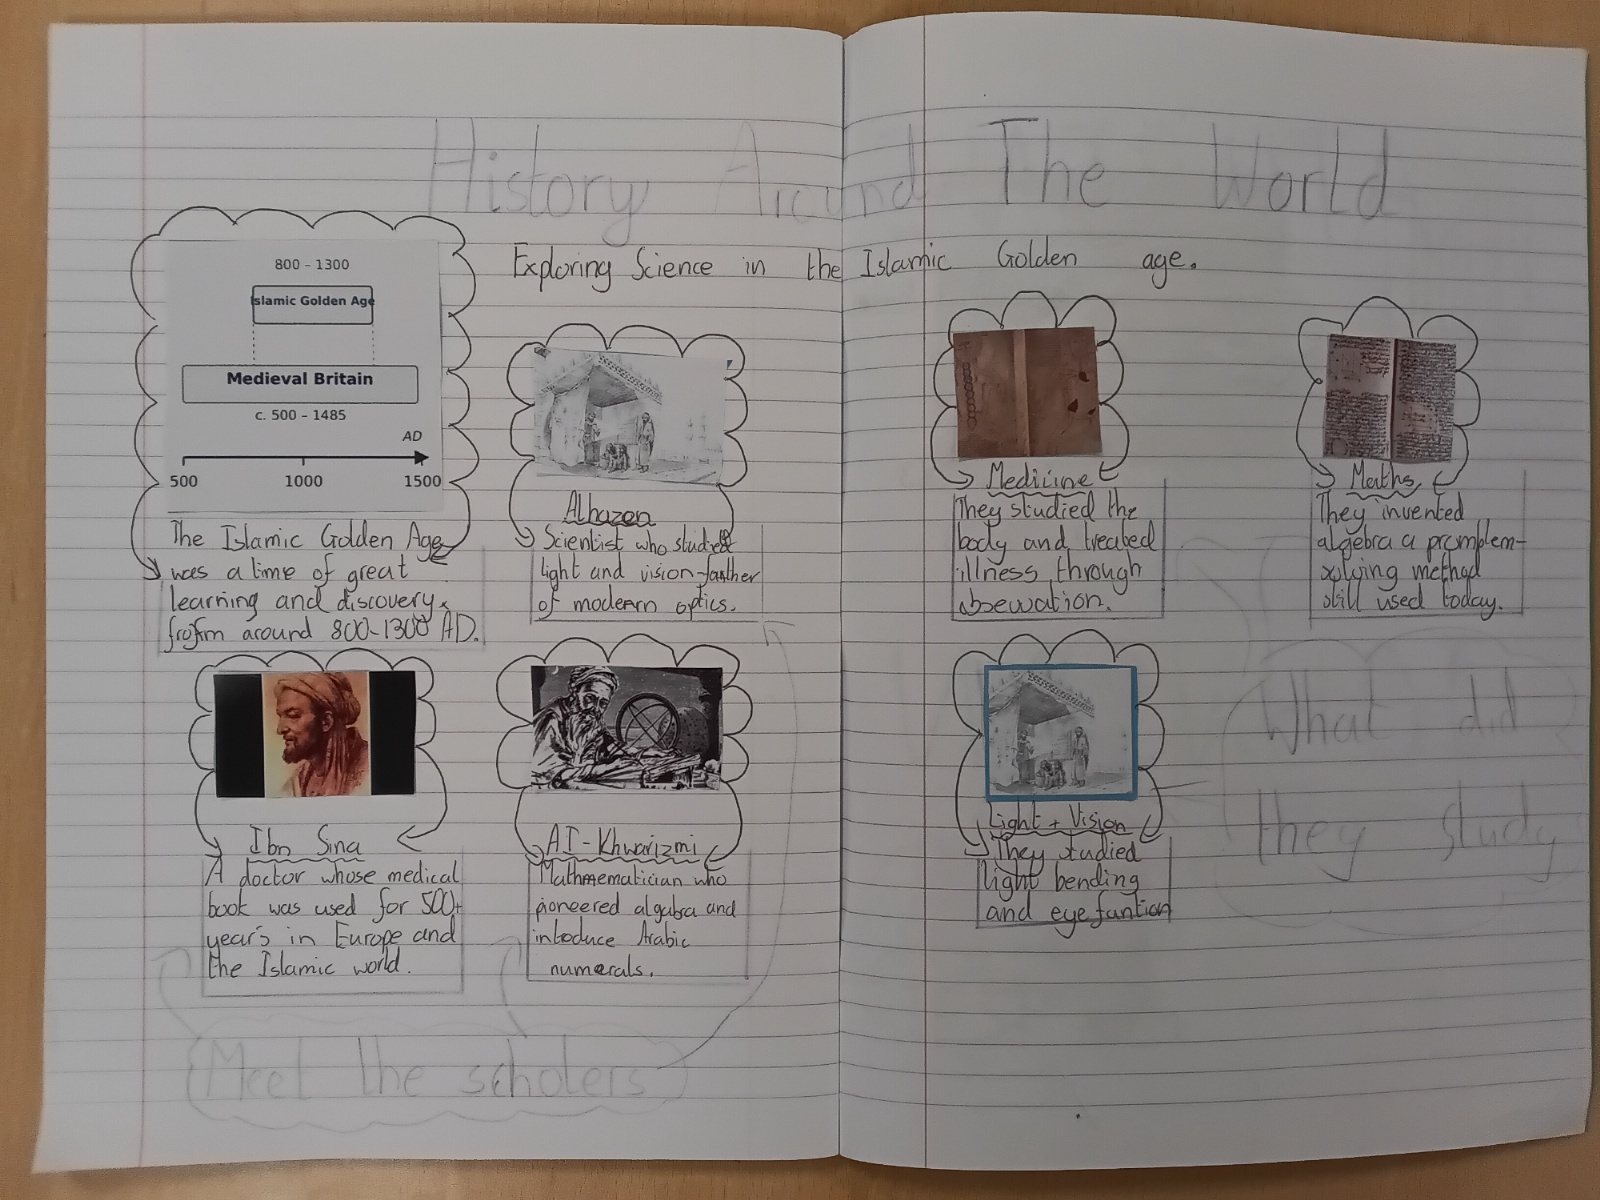 History Around The World
Exploring Science in the Islamic Golden age.
800 – 1300
Islamic Golden Age
Medieval Britain
c. 500 – 1485
AD
500 1000 1500
The Islamic Golden Age
was a time of great
learning and discovery
from around 800-1300 AD.
Alhazen
Scientist who studied
light and vision-father
of modern optics.
Ibn Sina
A doctor whose medical
book was used for 500+
year's in Europe and
the Islamic world.
Al-Khwarizmi
Mathmematician who
pioneered algabra and
intoduce Arabic
numerals.
Meet the scholers
Medicine
They studied the
body and treated
illness through
obsewation.
Maths
They invented
algebra a promplem-
solving method
still used today.
Light + Vision
They studied
light bending
and eye funtion
What did
they study